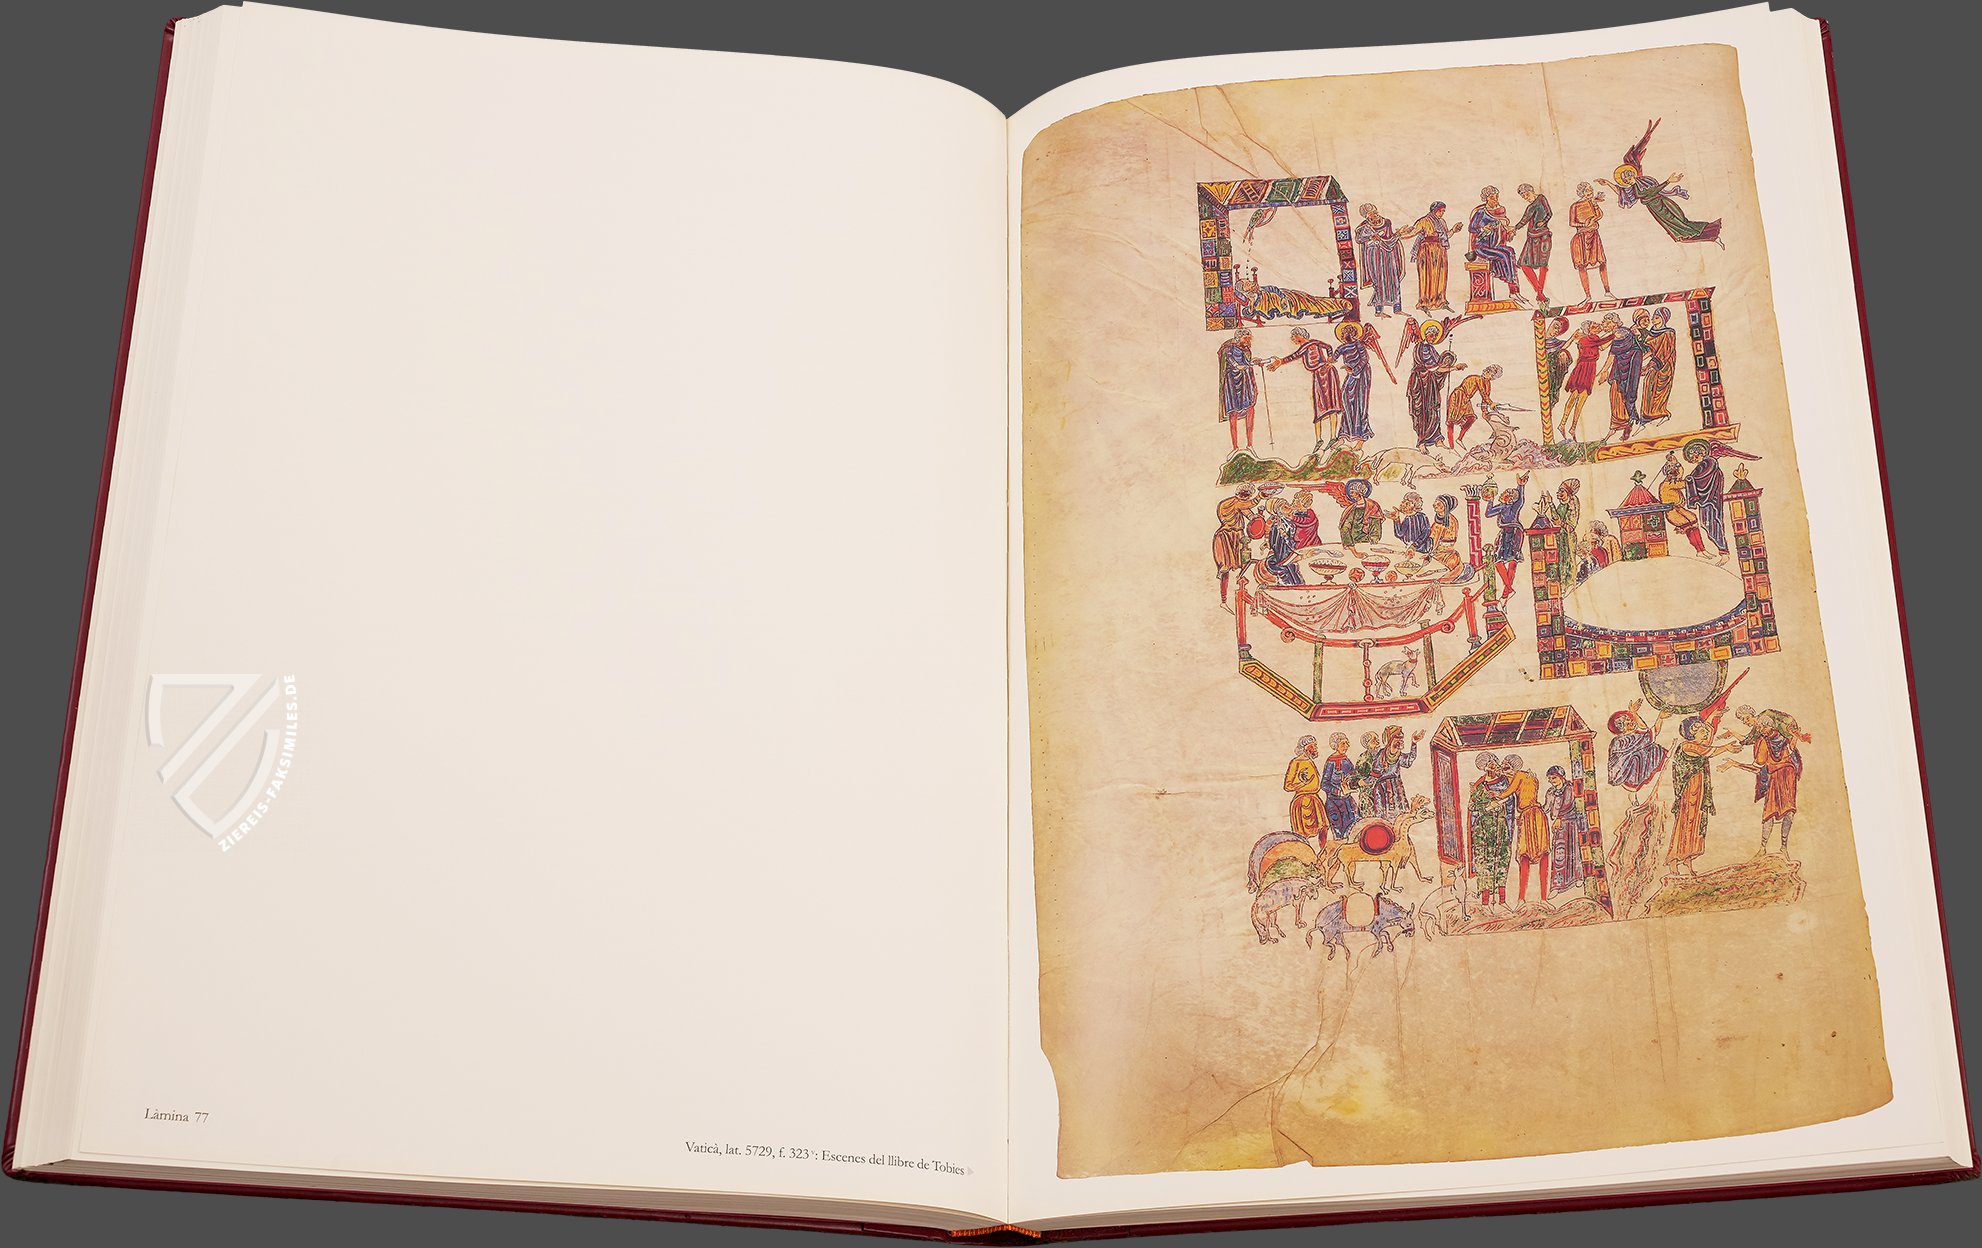 ZIEREIS-FAKSIMILES.DE
Làmina 77
Vaticà, lat. 5729, f. 323ᵛ: Escenes del llibre de Tobies